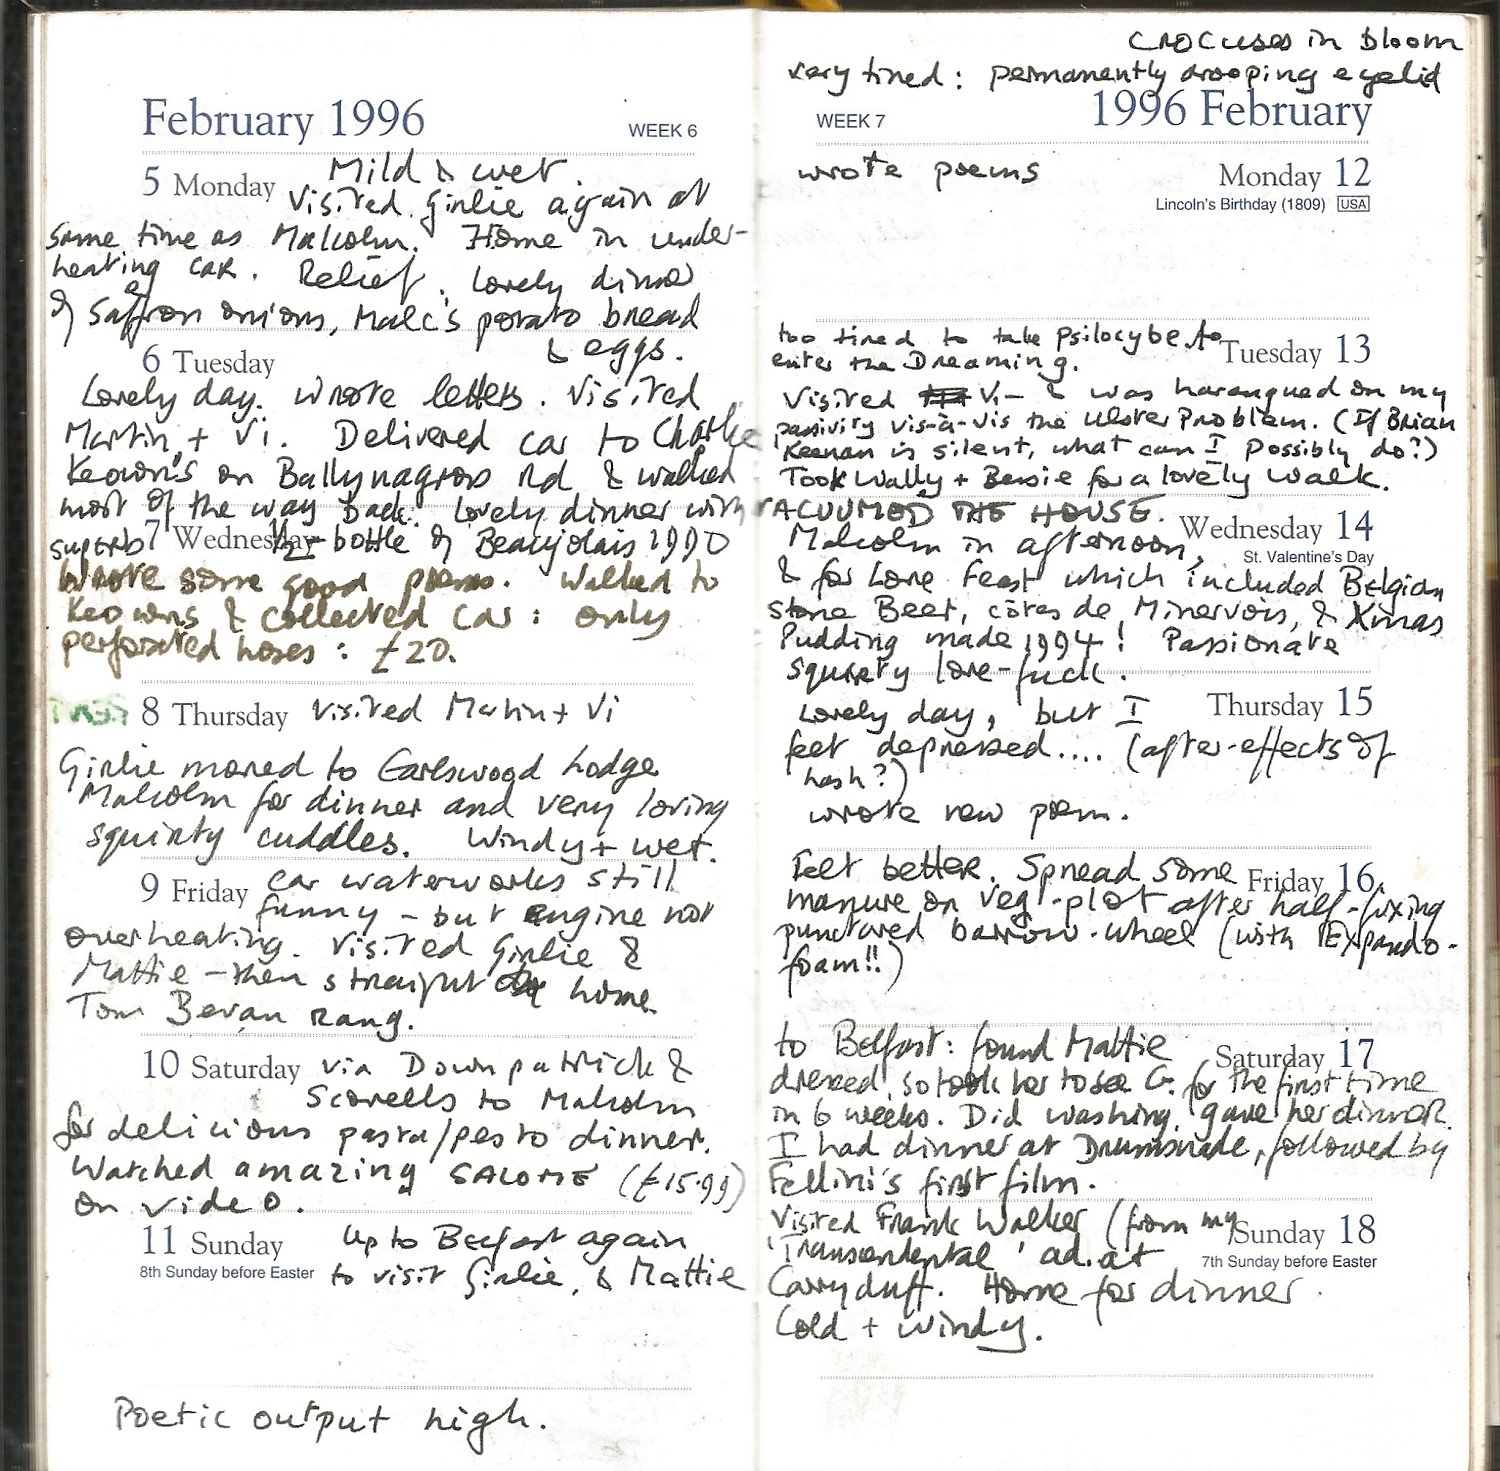 February 1996
WEEK 6
5 Monday
Mild & wet.
Visited Girlie again at
same time as Malcolm. Home in under-
heating car. Relief. Lovely dinner
of Saffron onions, Malc's potato bread
& eggs.
6 Tuesday
Lovely day. Wrote letters. Visited
Martin + Vi. Delivered car to Charlie
Keown's on Ballynagross Rd & walked
most of the way back. Lovely dinner with
superb 1/2-bottle of Beaujolais 1990
7 Wednesday
Wrote some good poems. Walked to
Keowns & collected car: only
perforated hoses: £20.
8 Thursday
Visited Martin + Vi
Girlie moved to Earlswood Lodge
Malcolm for dinner and very loving
squirty cuddles. Windy + wet.
9 Friday
car waterworks still
funny - but engine not
overheating. Visited Girlie &
Mattie - then straight home.
Tom Bevan rang.
10 Saturday
via Downpatrick &
Scovells to Malcolm
for delicious pasta/pesto dinner.
Watched amazing SALOME (£15.99)
on video.
11 Sunday
8th Sunday before Easter
up to Belfast again
to visit Girlie, & Mattie
Poetic output high.
crocuses in bloom
very tired: permanently drooping eyelid
WEEK 7
1996 February
wrote poems
Monday 12
Lincoln's Birthday (1809) USA
too tired to take psilocybe to
enter the Dreaming.
Tuesday 13
Visited Vi - & was harangued on my
passivity vis-à-vis the Ulster Problem. (If Brian
Keenan is silent, what can I possibly do?)
Took Wally + Bessie for a lovely walk.
VACUUMED THE HOUSE.
Wednesday 14
St. Valentine's Day
Malcolm in afternoon,
& for Love Feast which included Belgian
stone Beer, côtes de Minervois, & Xmas
Pudding made 1994! Passionate
squirty love-fuck.
Thursday 15
Lovely day, but I
felt depressed.... (after-effects of
hash?)
wrote new poem.
Friday 16
Felt better. Spread some
manure on veg-plot after half-fixing
punctured barrow-wheel (with Expando-
foam!!)
Saturday 17
to Belfast: found Mattie
dressed, so took her to see G. for the first time
in 6 weeks. Did washing, gave her dinner.
I had dinner at Drumsnade, followed by
Fellini's first film.
Sunday 18
7th Sunday before Easter
Visited Frank Walker (from my
'Transcendental' ad. at
Carryduff. Home for dinner.
Cold + windy.